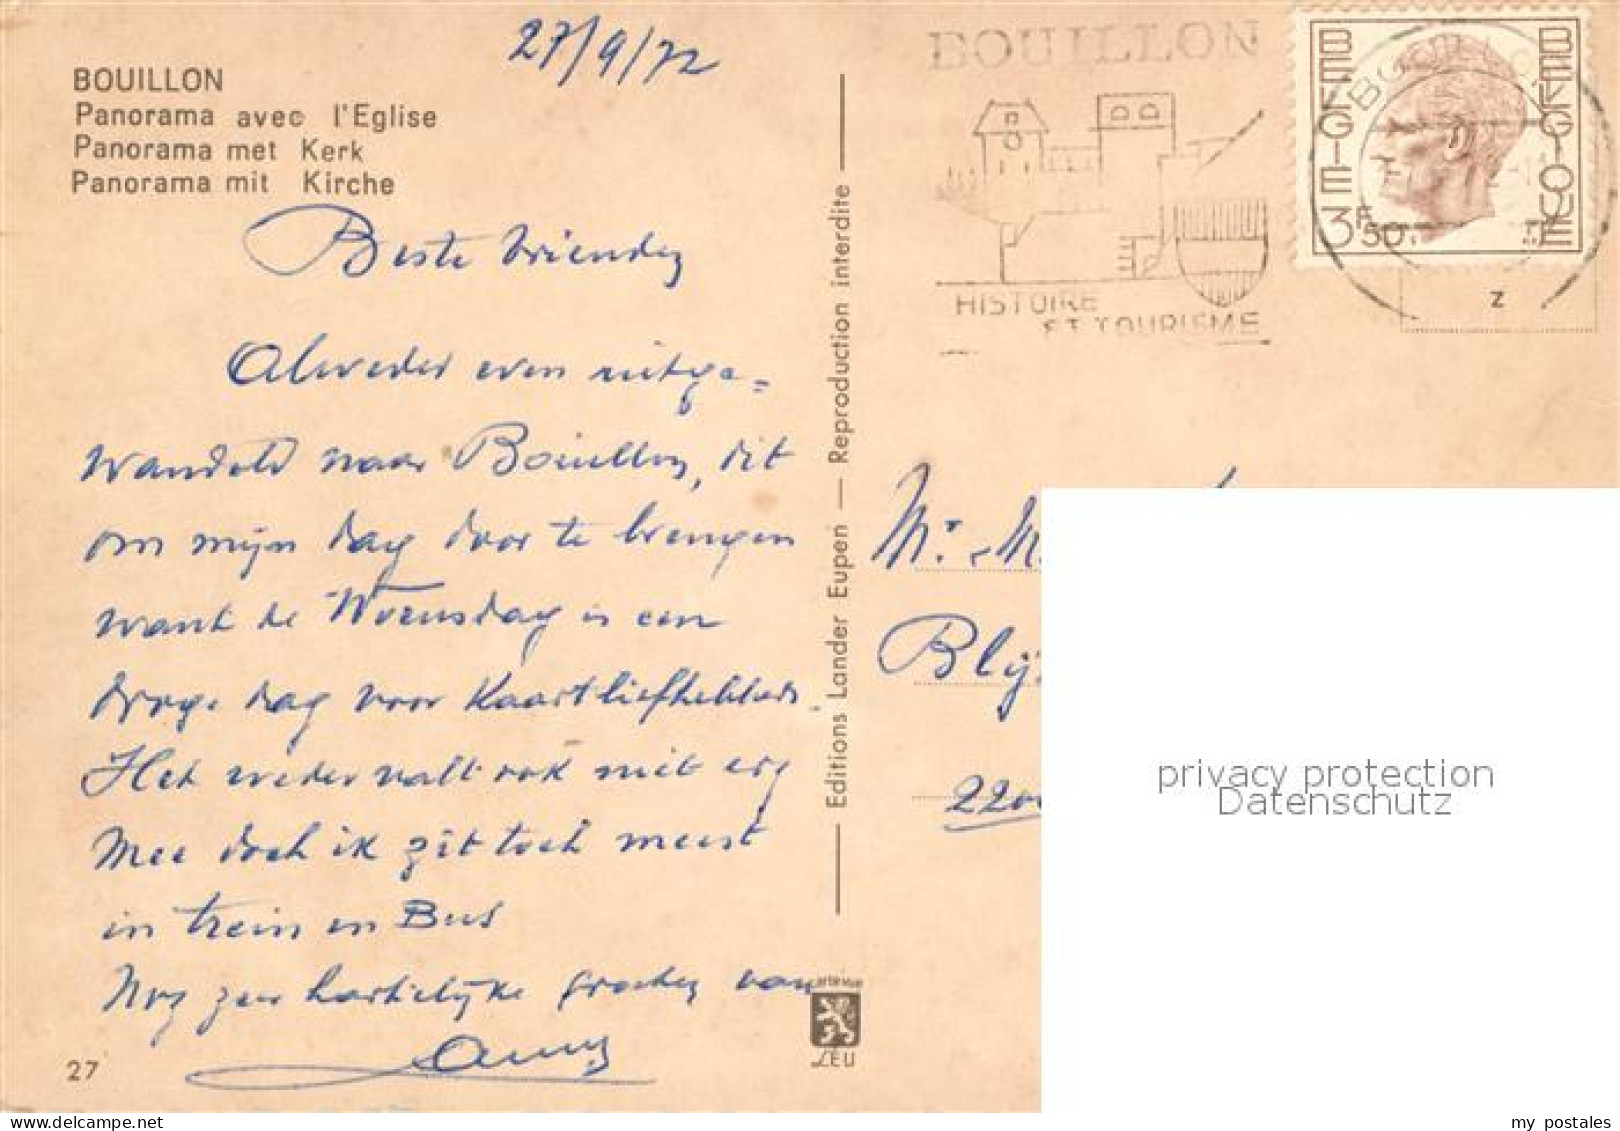 27/9/72
BOUILLON
Panorama avec l'Eglise
Panorama met Kerk
Panorama mit Kirche
Beste Vrienden
Alweder even uitge=
wandeld naar Bouillon, dit
om mijn dag door te brengen
want de Woensdag is een
droge dag voor Kaartliefhebbers.
Het weder valt ook niet erg
Mee doch ik zit toch meest
in trein en Bus
Nog zeer hartelijke groeten van
27
Editions Lander Eupen — Reproduction interdite
artevue
LEU
BOUILLON
HISTOIRE
ET TOURISME
BELGIE
BELGIQUE
3F50
z
Mr. M
Blij
220
privacy protection
Datenschutz
my postales
www.delcampe.net